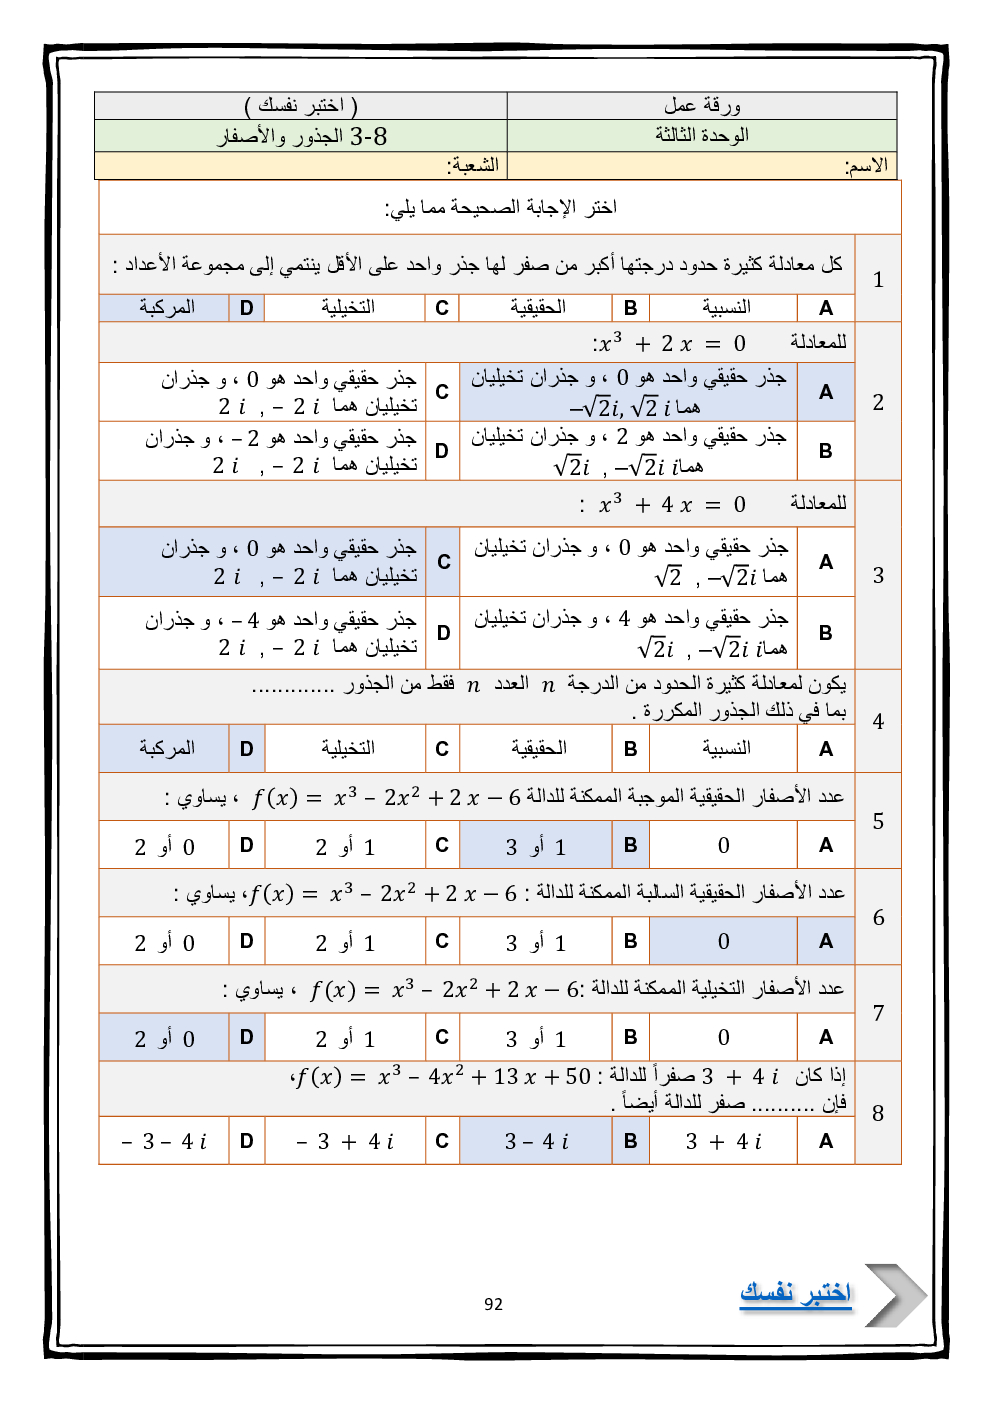 ورقة عمل
( اختبر نفسك )
الوحدة الثالثة
3-8 الجذور والأصفار
الاسم:
الشعبة:
اختر الإجابة الصحيحة مما يلي:
1
كل معادلة كثيرة حدود درجتها أكبر من صفر لها جذر واحد على الأقل ينتمي إلى مجموعة الأعداد :
A النسبية B الحقيقية C التخيلية D المركبة
2
للمعادلة x³ + 2 x = 0:
A
جذر حقيقي واحد هو 0 ، و جذران تخيليان
هما −√2i, √2 i
C
جذر حقيقي واحد هو 0 ، و جذران
تخيليان هما 2 i , – 2 i
B
جذر حقيقي واحد هو 2 ، و جذران تخيليان
هما √2i , −√2i i
D
جذر حقيقي واحد هو 2 – ، و جذران
تخيليان هما 2 i , – 2 i
3
للمعادلة x³ + 4 x = 0 :
A
جذر حقيقي واحد هو 0 ، و جذران تخيليان
هما √2 , −√2i
C
جذر حقيقي واحد هو 0 ، و جذران
تخيليان هما 2 i , – 2 i
B
جذر حقيقي واحد هو 4 ، و جذران تخيليان
هما √2i , −√2i i
D
جذر حقيقي واحد هو 4 – ، و جذران
تخيليان هما 2 i , – 2 i
4
يكون لمعادلة كثيرة الحدود من الدرجة n العدد n فقط من الجذور .............
بما في ذلك الجذور المكررة .
A النسبية B الحقيقية C التخيلية D المركبة
5
عدد الأصفار الحقيقية الموجبة الممكنة للدالة f(x) = x³ – 2x² + 2 x − 6 ، يساوي :
A 0 B 1 أو 3 C 1 أو 2 D 0 أو 2
6
عدد الأصفار الحقيقية السالبة الممكنة للدالة : f(x) = x³ – 2x² + 2 x − 6، يساوي :
A 0 B 1 أو 3 C 1 أو 2 D 0 أو 2
7
عدد الأصفار التخيلية الممكنة للدالة :f(x) = x³ – 2x² + 2 x − 6 ، يساوي :
A 0 B 1 أو 3 C 1 أو 2 D 0 أو 2
8
إذا كان 3 + 4 i صفراً للدالة : f(x) = x³ – 4x² + 13 x + 50،
فإن .......... صفر للدالة أيضاً .
A 3 + 4 i B 3 – 4 i C – 3 + 4 i D – 3 – 4 i
اختبر نفسك
92